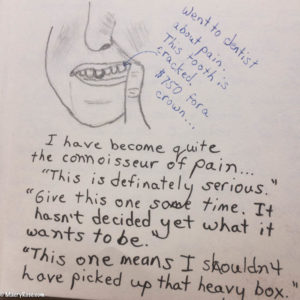 Went to dentist
about pain.
This tooth is
cracked.
$750 for a
crown...
I have become quite
the connoisseur of pain...
"This is definately serious."
"Give this one some time. It
hasn't decided yet what it
wants to be."
"This one means I shouldn't
have picked up that heavy box."